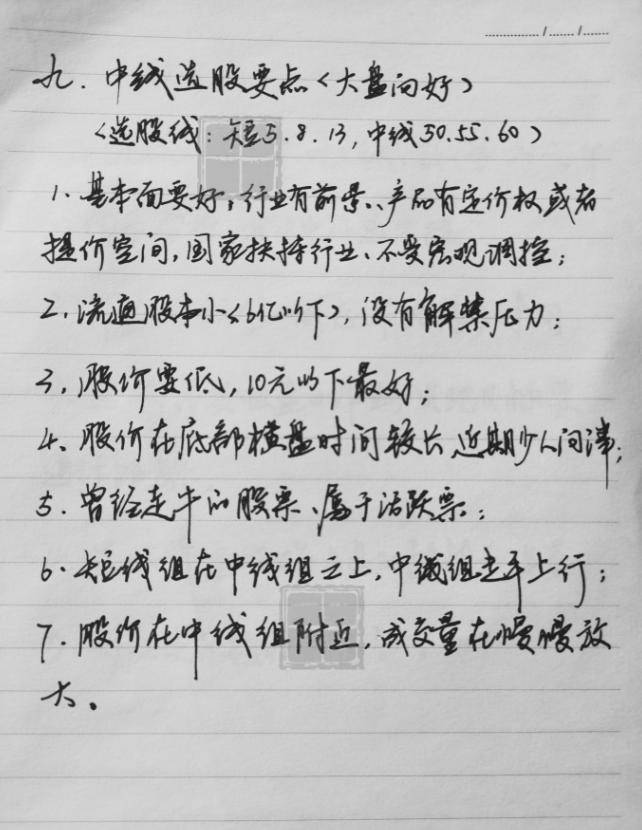 九.中线选股要点<大盘向好>
<选股线:短5.8.13,中线50.55.60>
1.基本面要好,行业有前景、产品有定价权或者
提价空间,国家扶持行业、不受宏观调控;
2.流通股本小<6亿以下>,没有解禁压力;
3.股价要低,10元以下最好;
4、股价在底部横盘时间较长,近期少人问津;
5.曾经走牛的股票、属于活跃票;
6.短线组在中线组之上,中线组走平上行;
7.股价在中线组附近,成交量在慢慢放
大。